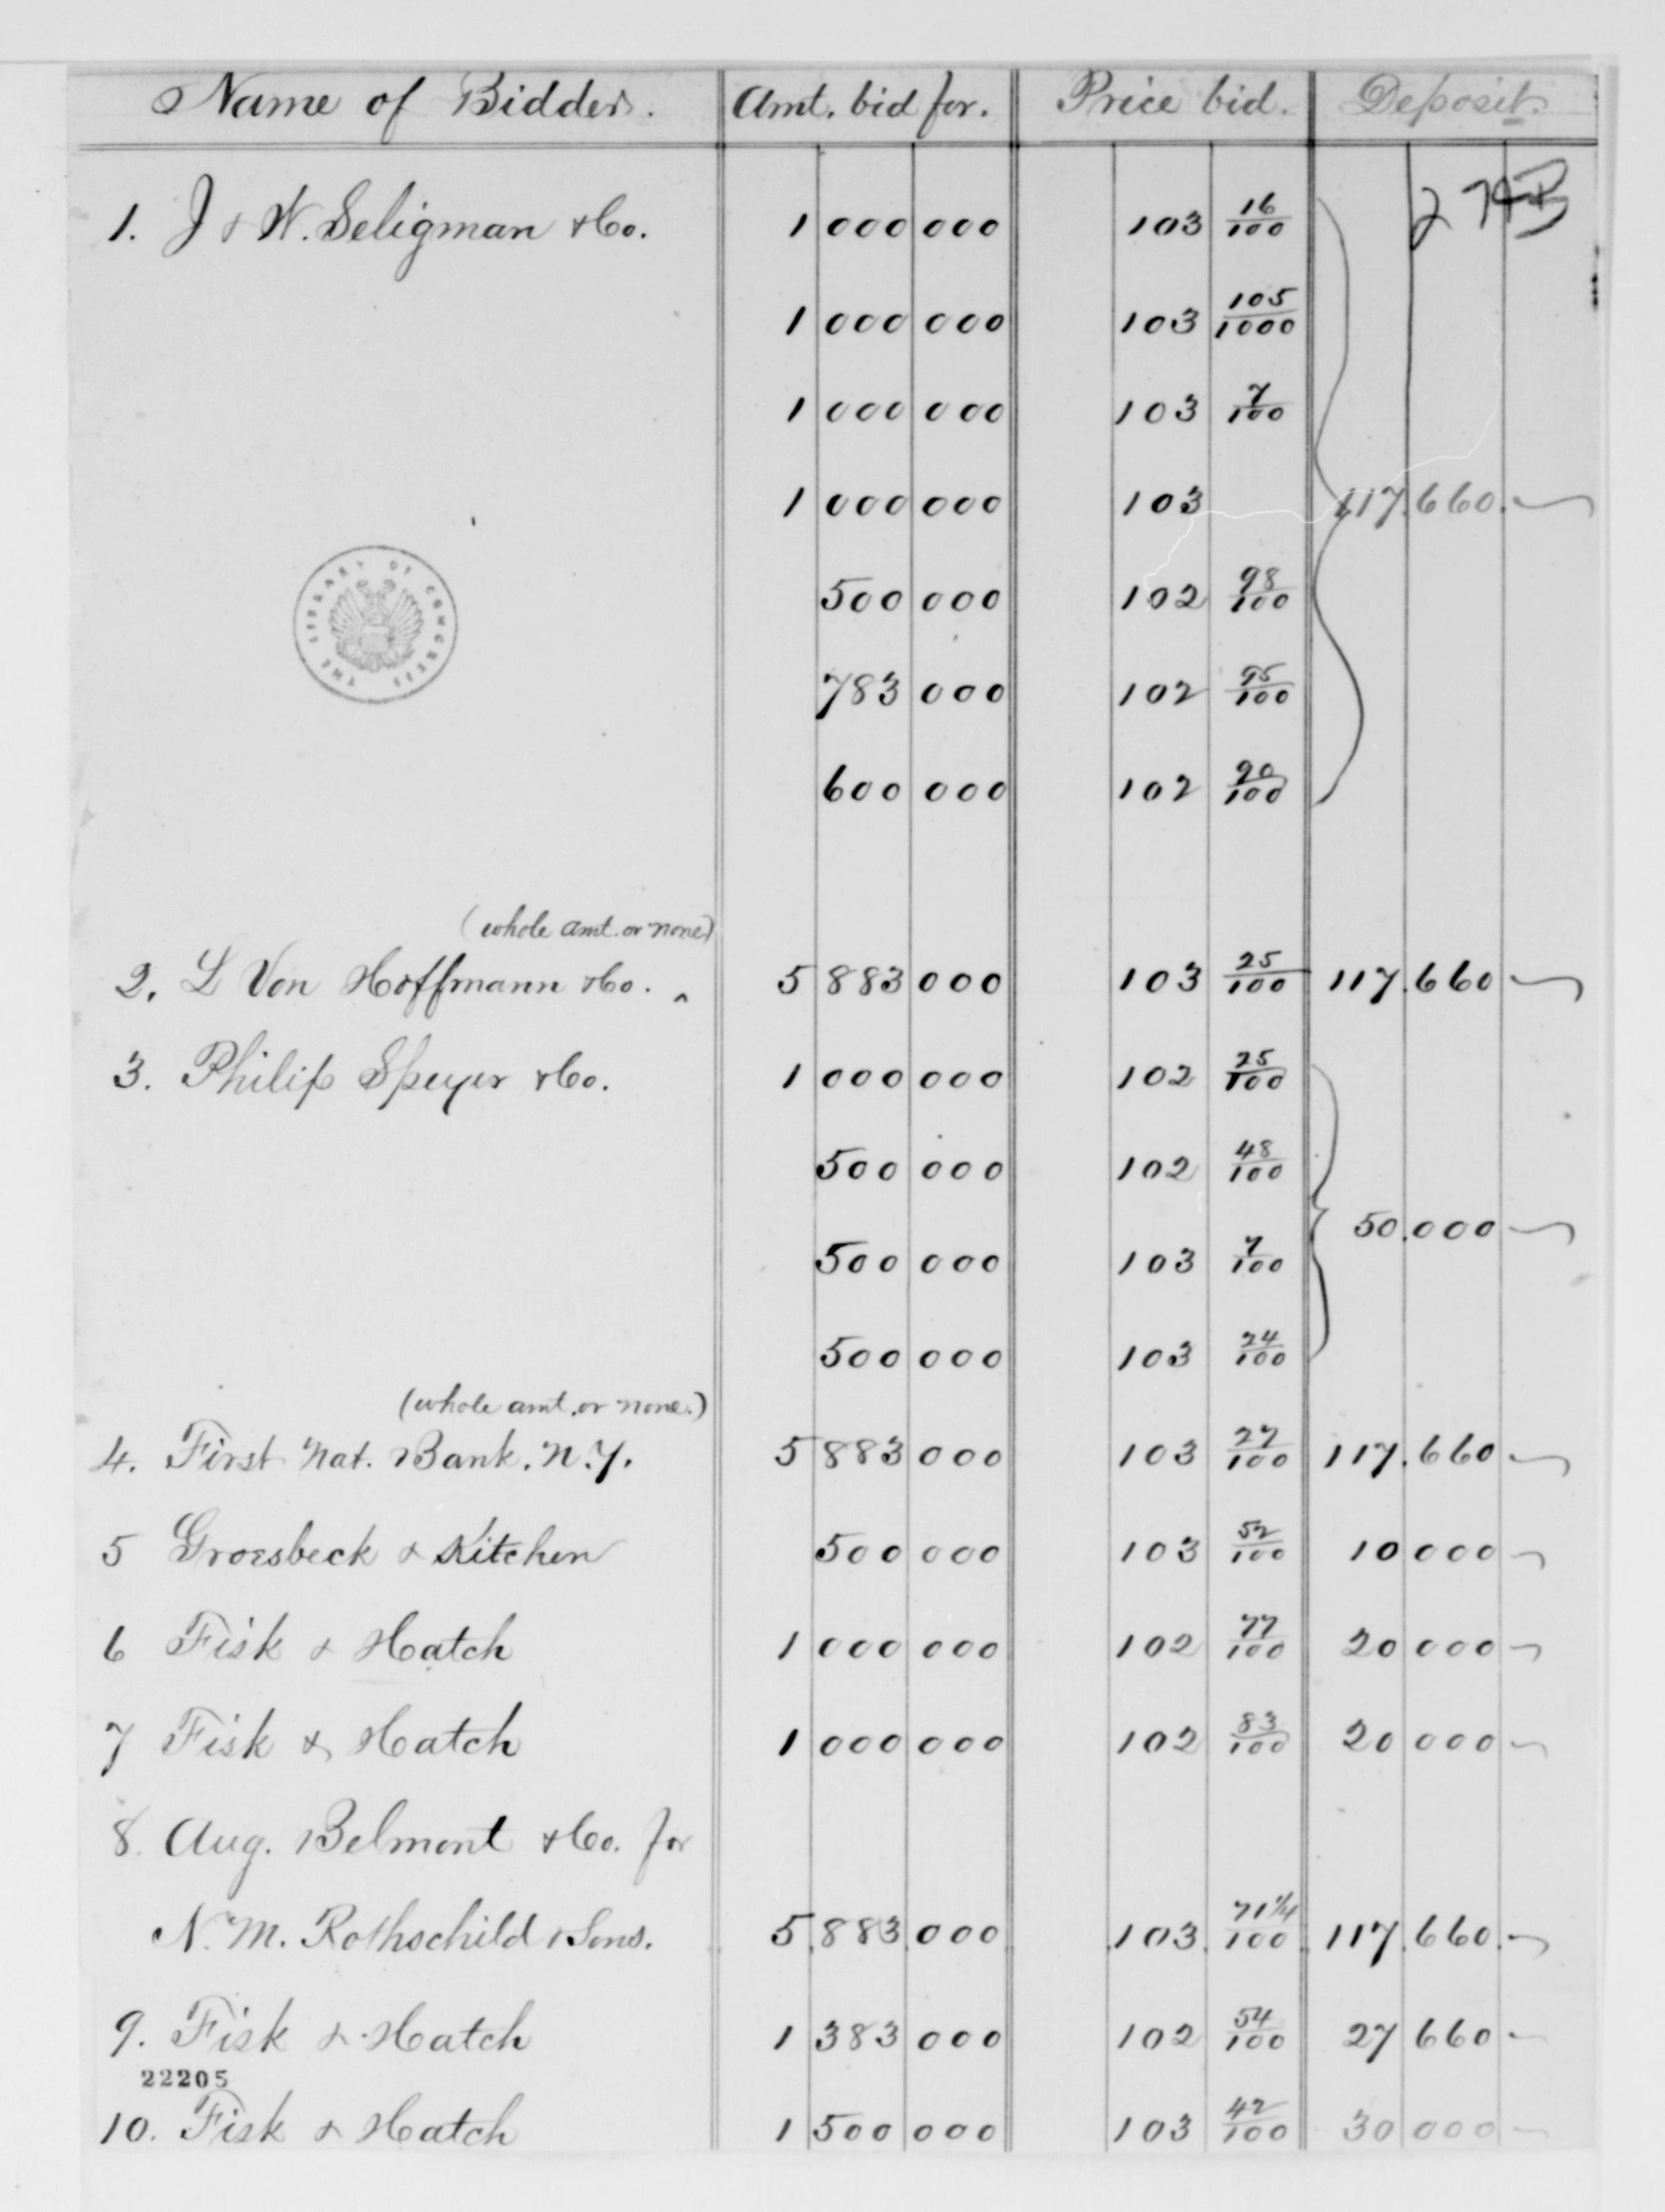 Name of Bidder. Amt. bid for. Price bid. Deposit.
1. J & W. Seligman & Co. 1 000 000 103 16/100
1 000 000 103 105/1000
1 000 000 103 7/100
1 000 000 103 117.660.
500 000 102 98/100
THE LIBRARY OF CONGRESS
783 000 102 95/100
600 000 102 90/100
(whole amt. or none)
2. L Von Hoffmann & Co. ^ 5 883 000 103 25/100 117.660
3. Philip Speyer & Co. 1 000 000 102 25/100
500 000 102 48/100
50.000
500 000 103 7/100
500 000 103 24/100
(whole amt. or none.)
4. First Nat. Bank. N.Y. 5 883 000 103 27/100 117.660
5 Groesbeck & Kitchen 500 000 103 52/100 10 000
6 Fisk & Hatch 1 000 000 102 77/100 20 000
7 Fisk & Hatch 1 000 000 102 83/100 20 000
8. Aug. Belmont & Co. for
N. M. Rothschild & Sons. 5.883.000 .103. 71 1/4/100. 117.660.
9. Fisk & Hatch 1 383 000 102 54/100 27 660
22205
10. Fisk & Hatch 1 500 000 103 42/100 30 000